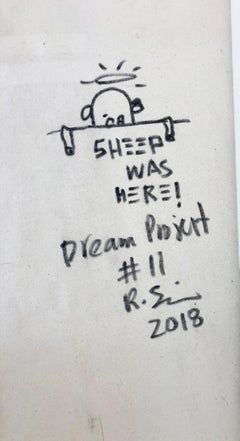 SHEEP
WAS
HERE!
Dream Project
#11
2018